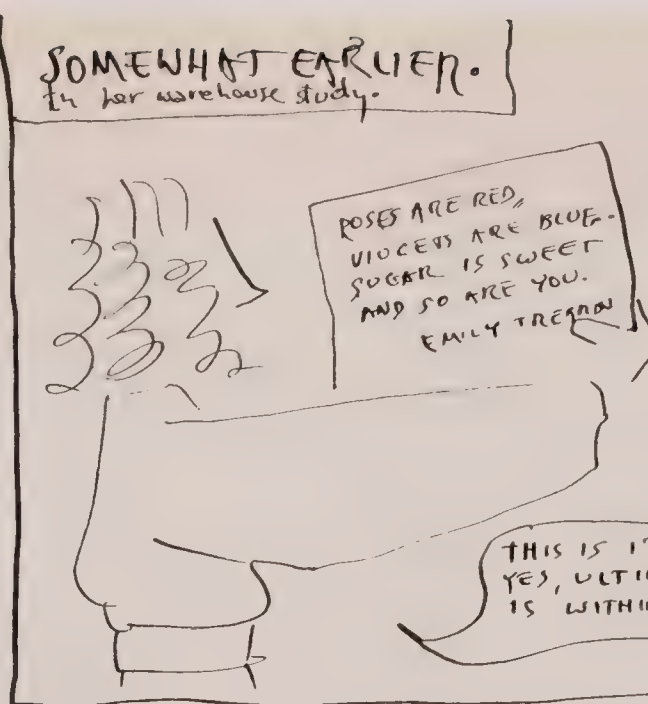 SOMEWHAT EARLIER.
In her warehouse study.
ROSES ARE RED,
VIOLETS ARE BLUE.
SUGAR IS SWEET
AND SO ARE YOU.
EMILY
THIS IS
YES,
IS